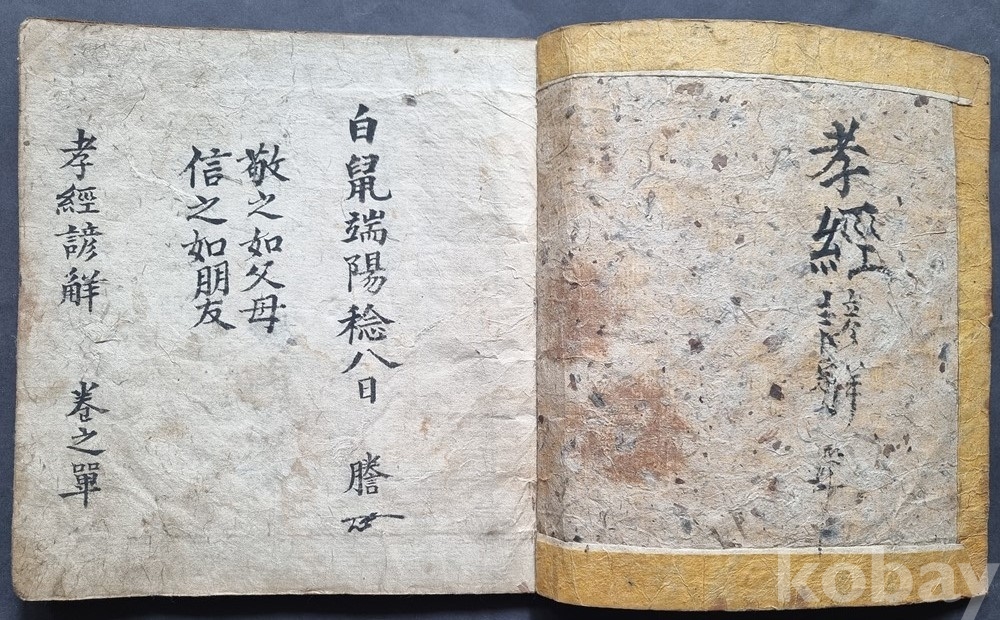 孝經諺解
白鼠端陽稔八日 謄
敬之如父母
信之如朋友
孝經諺解 卷之單
kobay